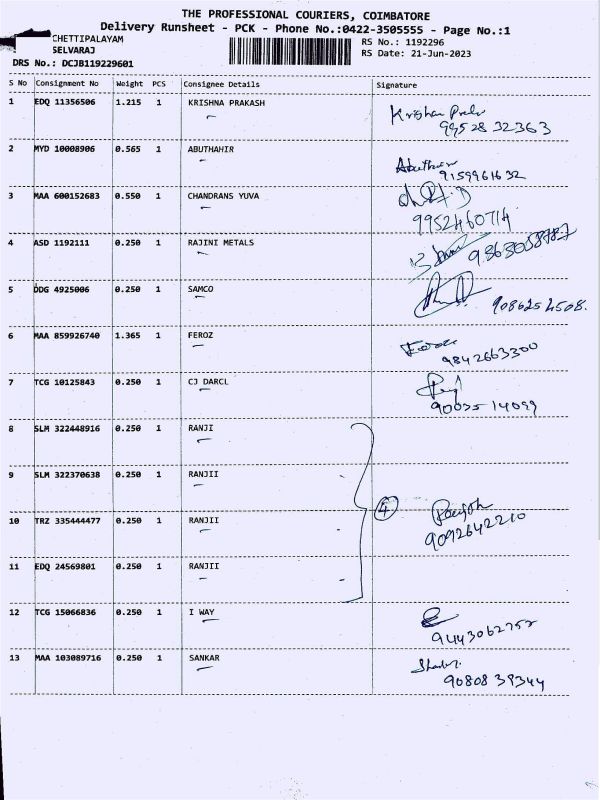 THE PROFESSIONAL COURIERS, COIMBATORE
Delivery Runsheet - PCK - Phone No.:0422-3505555 - Page No.:1
CHETTIPALAYAM
SELVARAJ
DRS No.: DCJB119229601
RS No.: 1192296
RS Date: 21-Jun-2023
S No Consignment No Weight PCS Consignee Details Signature
1 EDQ 11356506 1.215 1 KRISHNA PRAKASH
99528 32363
2 MYD 10008906 0.565 1 ABUTHAHIR
9159961632
3 MAA 600152683 0.550 1 CHANDRANS YUVA
9952460714
4 ASD 1192111 0.250 1 RAJINI METALS
5 DDG 4925006 0.250 1 SAMCO
6 MAA 859926740 1.365 1 FEROZ
9842663300
7 TCG 10125843 0.250 1 CJ DARCL
8 SLM 322448916 0.250 1 RANJI
9 SLM 322370638 0.250 1 RANJII
4
10 TRZ 335444477 0.250 1 RANJII
9092642210
11 EDQ 24569801 0.250 1 RANJII
12 TCG 15066836 0.250 1 I WAY
13 MAA 103089716 0.250 1 SANKAR